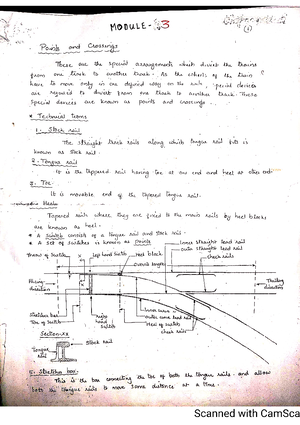 MODULE-3
Points and Crossings
These are the special arrangements which divert the trains
from one track to another track. As the wheels of the train
have to move only in one defined way on the rail, special devices
are required to divert from one track to another track. These
special devices are known as points and crossings.
* Technical terms
1. Stock rail
The straight track rails along which tongue rail fits is
known as stock rail.
2. Tongue rail
It is the tappered rail having toe at one end and heel at other end.
3. Toe
It is movable end of the tapered tongue rail.
Heel
Tapered rails where they are fixed to the main rails by heel blocks
are known as heel.
* Switch consists of a tongue rail and stock rail.
* A set of switches is known as points
Inner straight lead rail
Outer straight lead rail
Throw of switch
Left hand switch
Heel block
check rails
Overall length
Facing direction
Trailing direction
Stretcher bar
Toe of switch
Right hand switch
Inner curve
Outer curve lead rail
Heel of switch
check rails
Section-XX
Stock rail
Tongue rail
5. Stretcher bar:
This is the bar connecting the toe of both the tongue rails and allow
both the tongue rails to move same distance at a time.
Scanned with CamSca